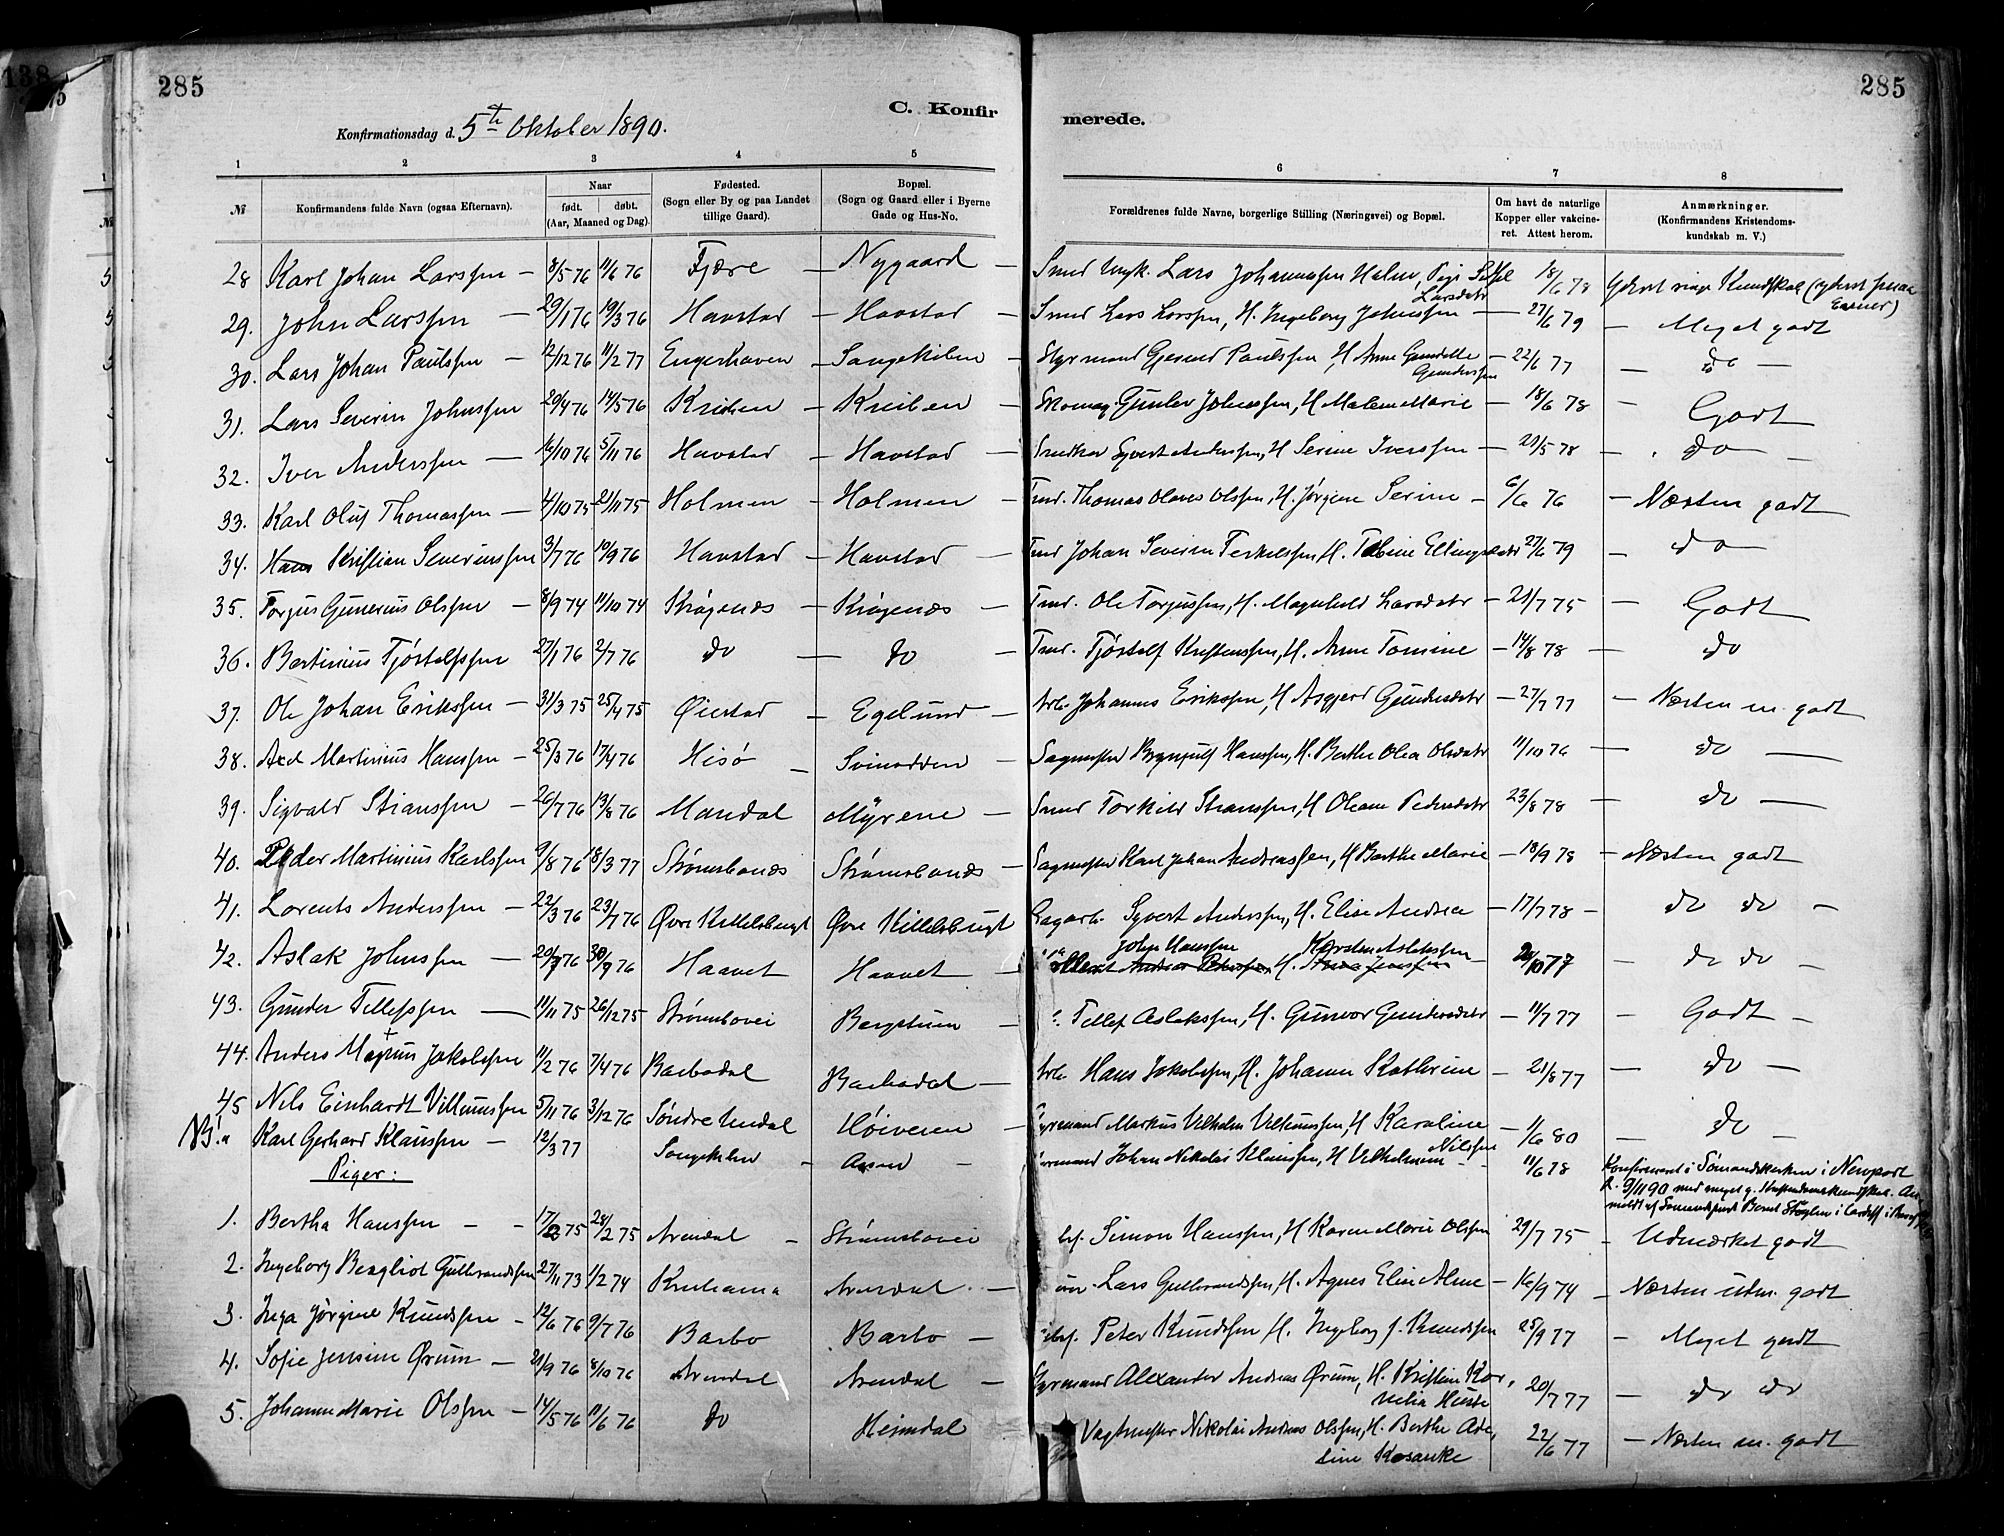 285
285
C. Konfir
merede.
Konfirmationsdag d. 5te Oktober 1890.
1 2 3 4 5 6 7 8
№ Konfirmandens fulde Navn (ogsaa Efternavn). Naar født. døbt. (Aar, Maaned og Dag). Fødested. (Sogn eller By og paa Landet tillige Gaard). Bopæl. (Sogn og Gaard eller i Byerne Gade og Hus-No. Forældrenes fulde Navne, borgerlige Stilling (Næringsvei) og Bopæl. Om havt de naturlige Kopper eller vakcineret. Attest herom. Anmærkninger. (Konfirmandens Kristendomskundskab m. V.)
28 Karl Johan Larssen — 8/5 76 11/6 76 Fjære — Nygaard — Smed Lars Johannssen Holm, Pige 18/6 78
29. John Larssen — 29/1 76 19/3 76 Havstad — Havstad — Smed Lars Larssen, H. Ingeborg Johnssen Larsdatr — 27/6 79 — Meget godt
30. Lars Johan Paulssen — 12/12 76 11/2 77 Engerhaven — Songekilen — Styrmand Paulssen, H Anne Gunderssen — 22/6 77 — do —
31. Lars Severin Johnssen 29/4 76 14/5 76 — Skomag. Gunder Johnssen, H Malene Marie — 18/6 78 — Godt
32. Iver Anderssen — 16/10 76 5/11 76 Havstad — Havstad — Snedker Syvert Anderssen, H Serine Iverssen — 29/5 78 — do —
33. Karl Oluf Thomassen — 4/10 75 21/11 75 Holmen — Holmen — Tmd. Thomas Olaves Olssen, H. Jørgine Serine — 6/6 76 — Næsten godt
34. Hans Kristian Severinssen 3/7 76 10/9 76 Havstad — Havstad — Tmd Johan Severin Terkelssen, H. Tobine Ellingsdatr 27/6 79 — do —
35. Torgus Gunerius Olssen — 8/9 74 11/10 74 Krøgenæs — Krøgenæs — Tmd. Ole Torgussen, H. Magnhild Larsdatr — 21/7 75 — Godt
36. Bertinius Tjøstolfssen 27/1 76 2/7 76 do — do — Tmd. Tjøstolf Kristenssen, H. Anne Tomine — 14/8 78 — do
37. Ole Johan Erikssen — 31/3 75 25/4 75 Øiestad — Egelund — Arb. Johannes Erikssen, H Asgjerd Gundersdatr — 27/7 77 — Næsten m. godt
38. Axel Martinius Hanssen — 25/3 76 17/4 76 Hisø — Svinodden — Sagmester Brynjulf Hanssen, H. Berthe Olea Olsdatr 11/10 76 — do —
39. Sigvald Stianssen — 26/7 76 13/8 76 Mandal Myrene — Smed Torkild Stianssen, H Oleane Pedersdatr 23/8 78 — do —
40. Peder Martinius Karlssen 9/8 76 18/3 77 Strømsbonæs Strømsbonæs — Sagmester Karl Johan Andreassen, H Berthe Marie — 18/9 78 — Næsten godt
41. Lorents Anderssen — 22/3 76 23/7 76 Øvre Kittelsbugt Øvre Kittelsbugt Sagarb. Syvert Anderssen, H. Elise Andrea — 17/7 78 — do do —
42. Aslak Johnssen — 20/7 76 30/9 76 Haavet — Haavet — John Hanssen H. Karsten Aslakssen — 20/10 77 — do do —
43. Gunder Tellefssen — 11/11 75 26/12 75 Strømsbovei Bergstuen — Tellef Aslakssen, H. Gunvor Gundersdatr — 11/7 77 — Godt —
44. Anders Magnus Jakobssen 11/2 76 7/4 76 Barbodal Barbodal — Arb Hans Jakobssen, H. Johanne Kathrine — 21/8 77 — do —
45 Nils Einhardt Villumssen 5/11 76 3/12 76 Søndre Undal Høiveien — Styrmand Markus Vilhelm Villumssen, H Karoline — 1/6 80 — do —
NB. Karl Gerhard Klaussen — 12/3 77 Songekilen — — Styrmand Johan Nikolai Klaussen, H Vilhelmine Nilssen 11/6 78 Konfirmeret i Sømandskirken i Newport d. 9/11 90 med meget g. Kristendomskundskab. Anmeldt af Sømandsprest i Cardiff
Piger:
1. Bertha Hanssen — — 17/ 75 28/2 75 Arendal — Strømsbovei Simon Hanssen, H Karen Marie Olssen 29/7 75 — Udmærket godt
2. Ingeborg Bergliot Gulbrandssen 27/11 73 1/2 74 Kristiania Arendal — Lars Gulbrandssen, H. Agnes Elise Alme — 16/9 74 — Næsten udm. godt
3. Inga Jørgine Knudssen — 12/6 76 9/7 76 Barbo — Barbo — Peter Knudssen H. Ingeborg J. Knudssen 25/9 77 — Meget godt
4. Sofie Jensine Ørum — 21/9 76 8/10 76 Arendal Arendal — Styrmand Alexander Andreas Ørum, H. Kristine Kornelia 20/7 77 — do do
5. Johanne Marie Olssen — 14/5 76 11/6 76 do Heimdal Vagtmester Nikolai Andreas Olssen, H. Berthe Adeline 22/6 77 — Næsten m. godt